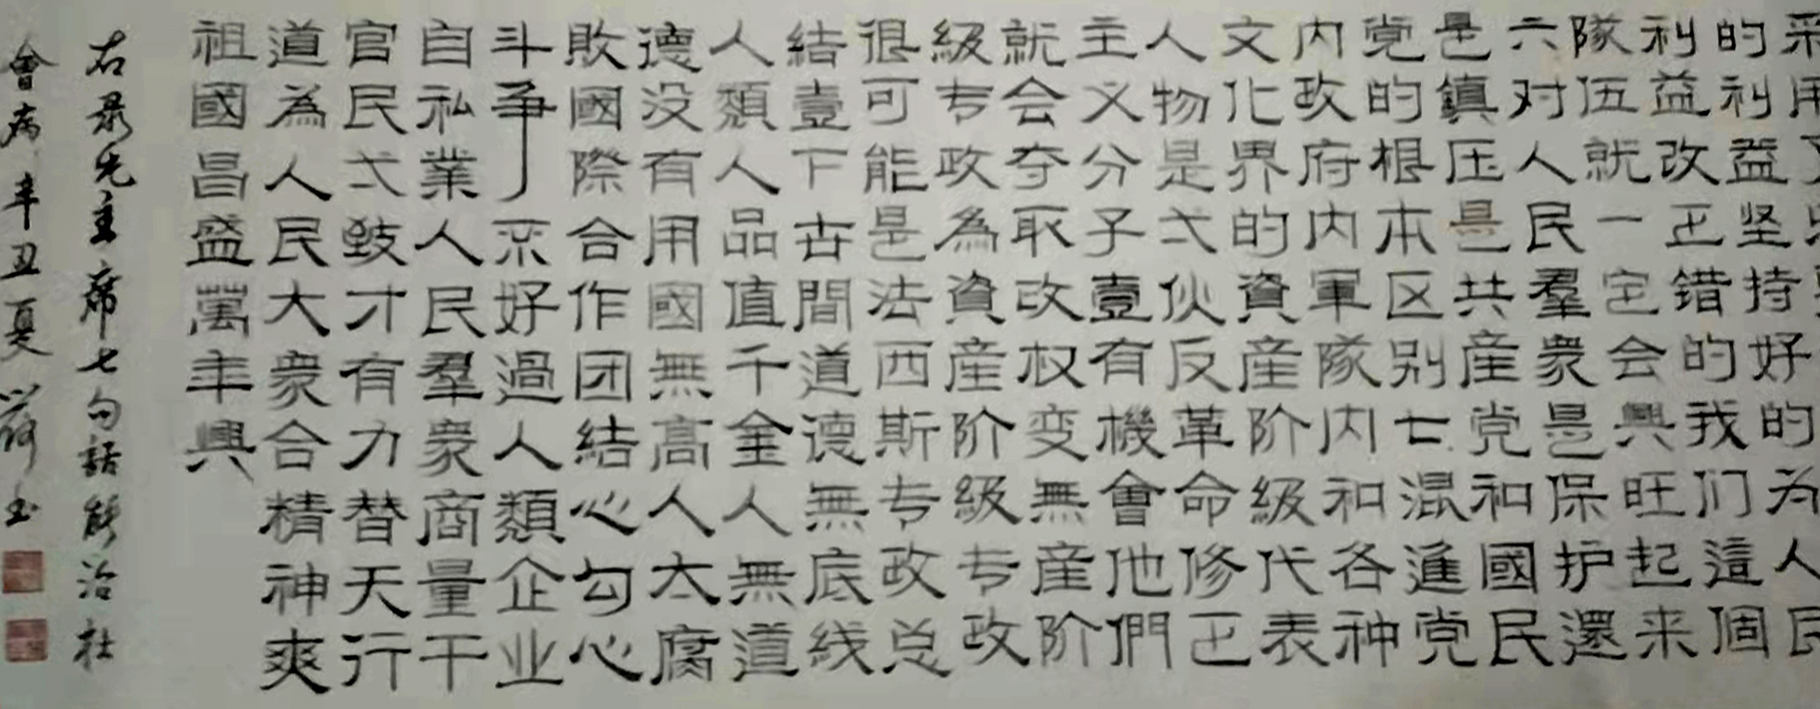 的利益坚持好的为人民
利益改正錯的我们這個
隊伍就一定会興旺起来
六对人民羣衆是保护還
是鎮压是共産党和國民
党的根本区别七混進党
内政府内軍隊内和各种
文化界的資産阶級代表
人物是弌伙反革命修正
主义分子壹有機會他們
就会夺取政权变無産阶
級专政為資産阶級专政
很可能是法西斯专政总
結壹下世間道德無底线
人類人品值千金人無道
德没有用國無高人太腐
敗國際合作团結心勾心
斗争不好過人類企业
自私業人民羣衆商量干
官民弌致才有力替天行
道為人民大衆合精神爽
祖國昌盛萬年興
右录先主席七句話能治社
會病辛丑夏书